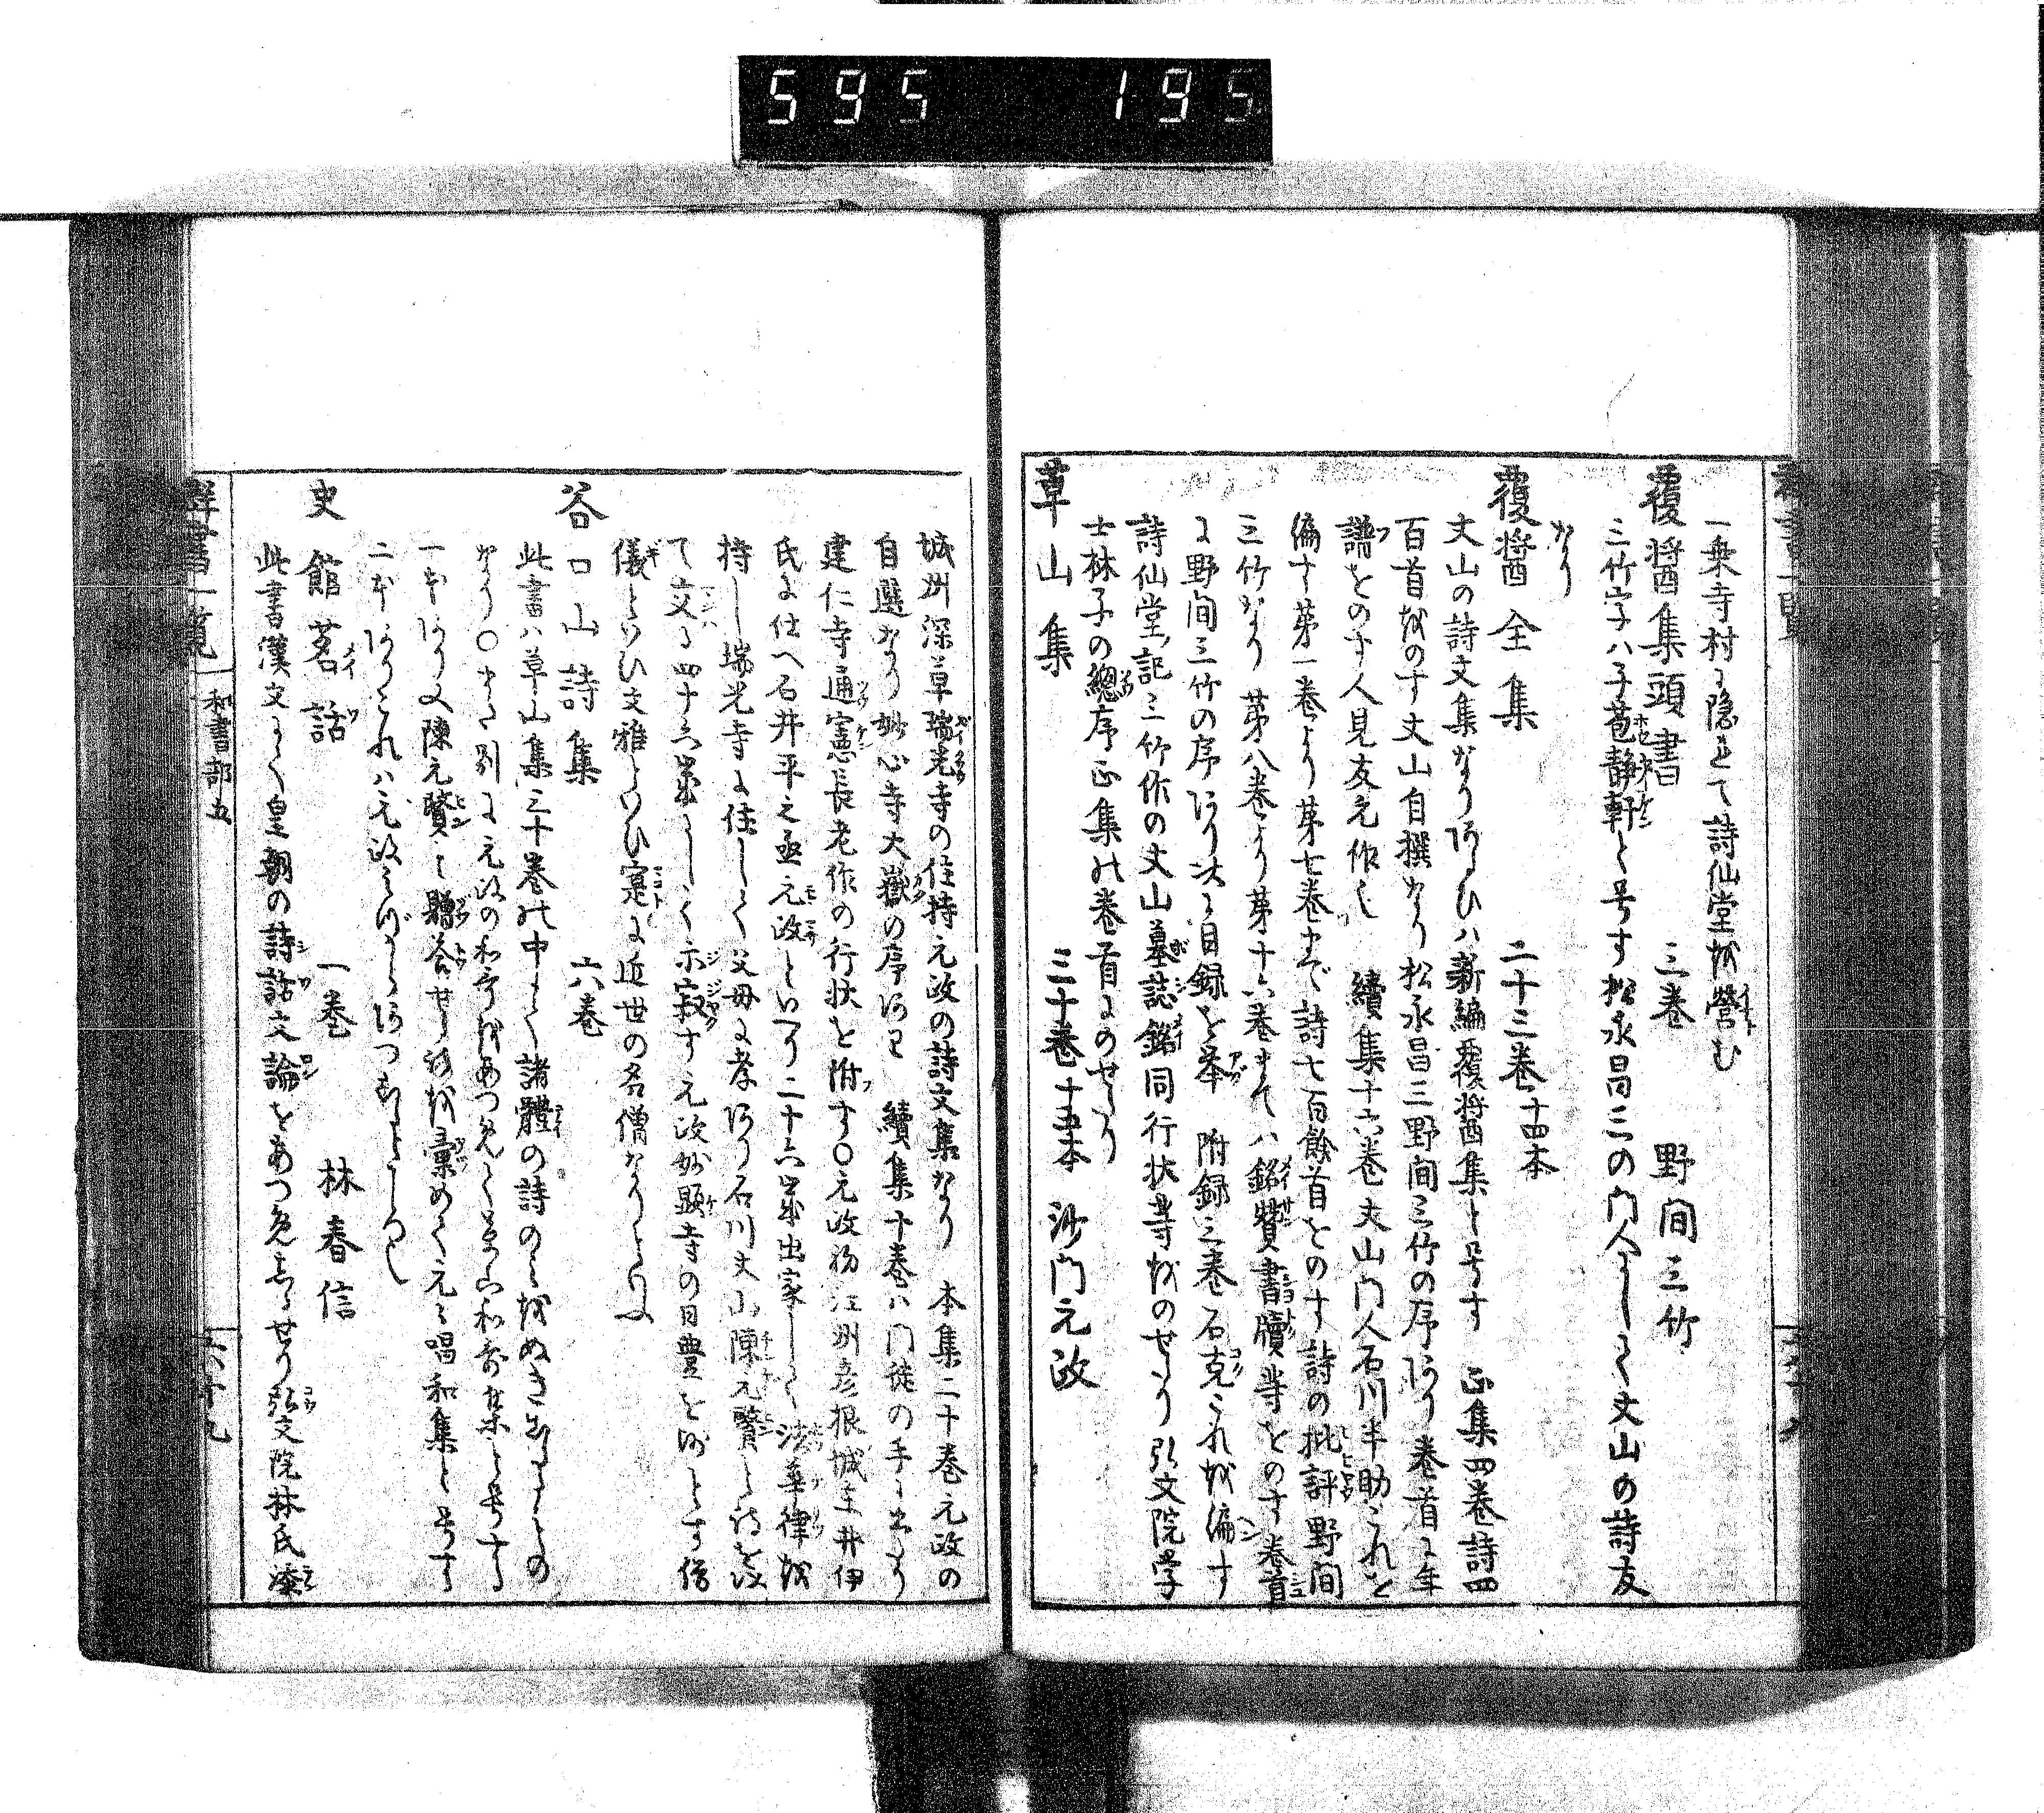 595 195
一乗寺村に隠れて詩仙堂を營む
覆醤集頭書 三巻 野間三竹
三竹字ハ子苞静軒と号す松永昌三の門人にして丈山の詩友
なり
覆醤全集 二十三巻 十四本
丈山の詩文集なりあるひハ新編覆醤集と号す 正集四巻詩四
百首をのす丈山自撰なり松永昌三野間三竹の序あり巻首に年
譜をのす人見友元作也 續集十六巻丈山門人石川半助これを
編す第一巻より第七巻まで詩七百餘首をのす詩の批評野間
三竹なり 第八巻より第十六巻までハ銘賛書牘等をのす巻首
に野間三竹の序あり次に目録を挙 附録三巻石克これを編す
詩仙堂記三竹作の丈山墓誌銘同行状等をのせり弘文院学
士林子の總序正集の巻首にのせたり
草山集 三十巻 十五本 沙門元政
城洲深草瑞光寺の住持元政の詩文集なり 本集二十巻元政の
自選なり妙心寺大嶽の序あり 續集十巻ハ門徒の手に出たり
建仁寺通憲長老作の行状を附す〇元政初江洲彦根城主井伊
氏に仕へ石井平之丞元政といへり二十六歳出家して法華律を
持し瑞光寺に住して父母に孝あり石川丈山陳元贇と
四十六歳にして示寂す元政妙顕寺の日豊を師とす僧
儀といひ文雅といひ寔に近世の名僧なりといふ
谷口山詩集 六巻
此書ハ草山集三十巻の中にて諸體の詩のミをぬき出したるもの
なり〇また別に元政の和哥をあつめて草山和哥集と号する
一本あり又陳元贇と贈答せし詩を彙めて元々唱和集と号す
二本ありこれハ元政
史館茗話 一巻 林春信
此書漢文にて皇朝の詩話文論をあつめしるせり弘文院林氏
群書一覧 和書部五 六十九